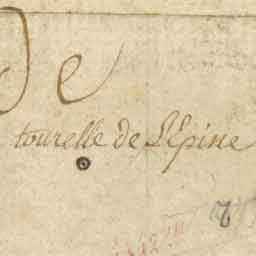 De
tourelle de L'Epine